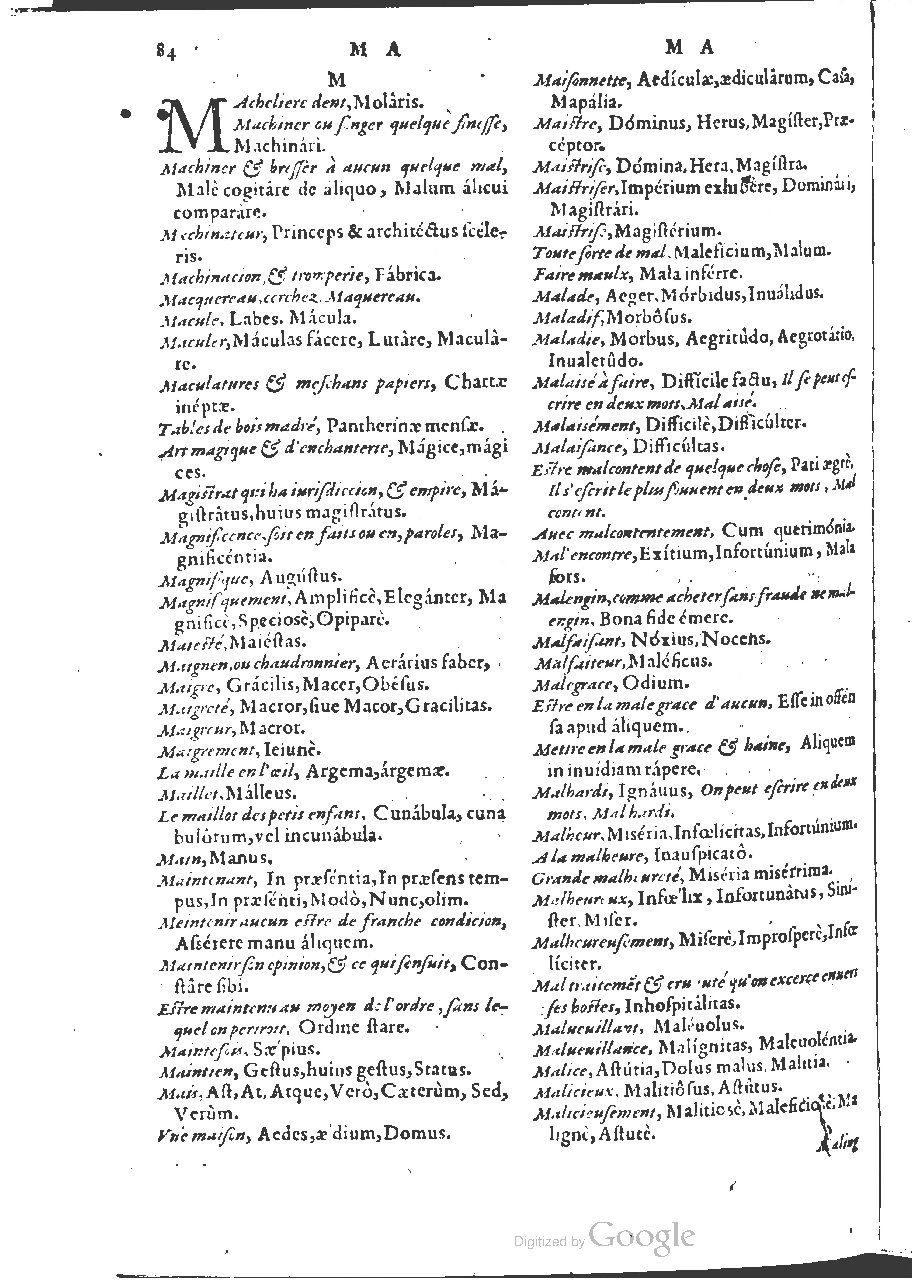 84 M A M A
M
MAcheliere dent, Molâris.
Machiner ou songer quelque finesse,
Machinári.
Machiner & brasser à aucun quelque mal,
Malè cogitâre de áliquo, Malum álicui
comparâre.
Machinateur, Princeps & architéctus scéle-
ris.
Machinacion, & tromperie, Fábrica.
Macquereau, cerchez, Maquereau.
Macule, Labes, Mácula.
Maculer, Máculas fácere, Lutâre, Maculâ-
re.
Maculatures & meschans papiers, Chartæ
inéptæ.
Tables de bois madré, Pantherinæ mensæ.
Art magique & d'enchanterie, Mágice, mági
ces.
Magistrat qui ha iurisdiccion, & empire, Má-
gistrâtus, huius magistrátus.
Magnificence, soit en faits ou en, paroles, Ma-
gnificéntia.
Magnifique, Augústus.
Magnifiquement, Amplificè, Elegánter, Ma
gnificè, Speciosè, Opiparè.
Maiesté, Maiéstas.
Maignen, ou chaudronnier, Aerárius faber,
Maigre, Grácilis, Macer, Obésus.
Maigreté, Macror, siue Macor, Gracilitas.
Maigreur, Macror.
Maigrement, Ieiunè.
La maille en l'œil, Argema, árgemæ.
Maillet, Málleus.
Le maillot des petis enfans, Cunábula, cuna
bulôrum, vel incunábula.
Main, Manus.
Maintenant, In præséntia, In præsens tem-
pus, In præsénti, Modò, Nunc, olim.
Meintenir aucun estre de franche condicion,
Assérere manu áliquem.
Maintenir son opinion, & ce qui sensuit, Con-
stâre sibi.
Estre maintenu au moyen de l'ordre, sans le-
quel on periroit, Ordine stare.
Maintesfois, Sæpius.
Maintien, Gestus, huius gestus, Status.
Mais, Ast, At, Atque, Verò, Cæterùm, Sed,
Verùm.
Vne maison, Aedes, ædium, Domus.
Maisonnette, Aedículæ, ædiculârum, Casa,
Mapália.
Maistre, Dóminus, Herus, Magíster, Præ-
céptor.
Maistrise, Dómina, Hera, Magístra.
Maistriser, Impérium exhibêre, Dominári,
Magistrári.
Maistrise, Magistérium.
Toute sorte de mal, Maleficium, Malum.
Faire maulx, Mala inférre.
Malade, Aeger, Mórbidus, Inuálidus.
Maladif, Morbôsus.
Maladie, Morbus, Aegritûdo, Aegrotátio,
Inualetûdo.
Malaisé à faire, Difficile factu, Il se peut es-
crire en deux mots, Mal aisé.
Malaisément, Difficilè, Difficúlter.
Malaisance, Difficúltas.
Estre malcontent de quelque chose, Pati ægrè,
Il s'escrit le plus souuent en deux mots, Mal
content.
Auec malcontentement, Cum querimónia.
Mal'encontre, Exítium, Infortúnium, Mala
fors.
Malengin, comme acheter sans fraude ne mal-
engin, Bona fide émere.
Malfaisant, Nóxius, Nocens.
Malfaiteur, Maléficus.
Malegrace, Odium.
Estre en la male grace d'aucun, Esse in offen
sa apud áliquem.
Mettre en la male grace & haine, Aliquem
in inuídiam rápere.
Malhardi, Ignáuus, On peut escrire en deux
mots, Mal hardi.
Malheur, Miséria, Infœlícitas, Infortúnium.
A la malheure, Inauspicatô.
Grande malheureté, Miséria misérrima.
Malheureux, Infœ'lix, Infortunâtus, Sini-
ster, Miser.
Malheureusement, Miserè, Improsperè, Infœ
líciter.
Mal traitemēt & cruauté qu'on excerçe enuers
ses hostes, Inhospitálitas.
Malueuillant, Maléuolus.
Malueuillance, Malígnitas, Maleuoléntia.
Malice, Astútia, Dolus malus, Malítia.
Malicieux, Malitiôsus, Astûtus.
Malicieusement, Malitiosè, Maleficiosè, Ma
lignè, Astutè.
Malin
Digitized by Google